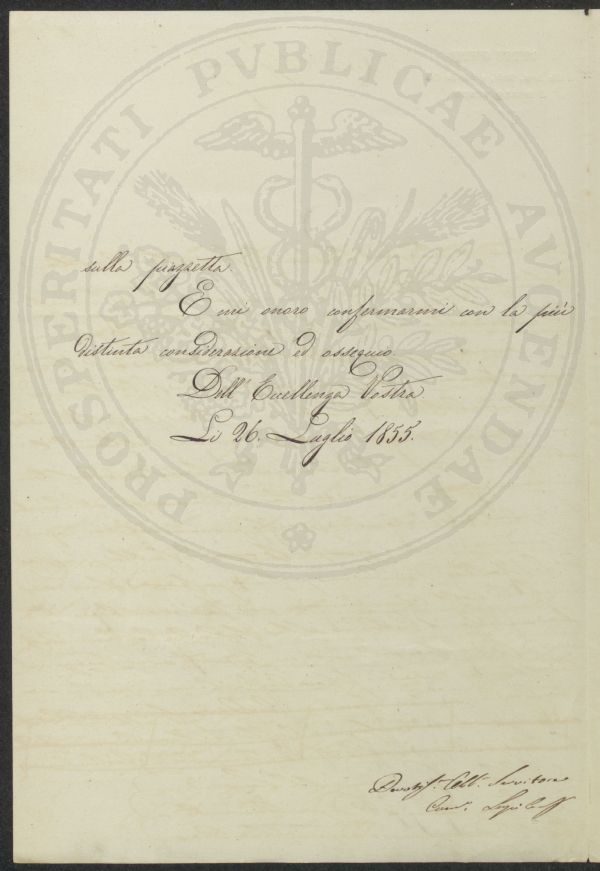 PROSPERITATI PVBLICAE AVGENDAE
sulla piazzetta.
E mi onoro confermarmi con la più
distinta considerazione ed ossequio.
Dell' Eccellenza Vostra
Li 26. Luglio 1855.
Servitore